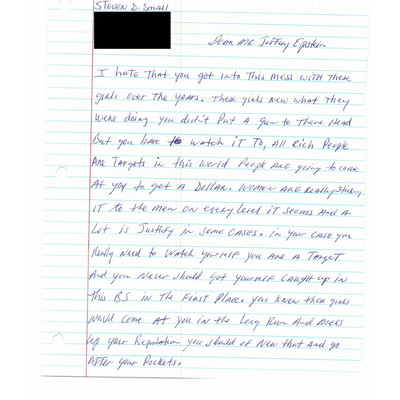 STEVEN D. SMALL
Dear MR Jeffrey Epstein
I hate That you got into This mess with these
girls over the years. These girls New what They
were doing you didn't Put A gun to There Head
But you have to watch iT To, All Rich People
Are Targets in this world People are going to come
At you to get A Dollar. Women are Really Sticking
iT to the men on every level iT seems And A
Lot is Justify in Some Cases. in your Case you
Really Need to Watch yourself you are A Target
And you Never should Got yourself Caught up in
this BS in the First Place. you knew them girls
would come At you in the Long Run And mess
up your Reputation you should of New that And go
After your Pockets.